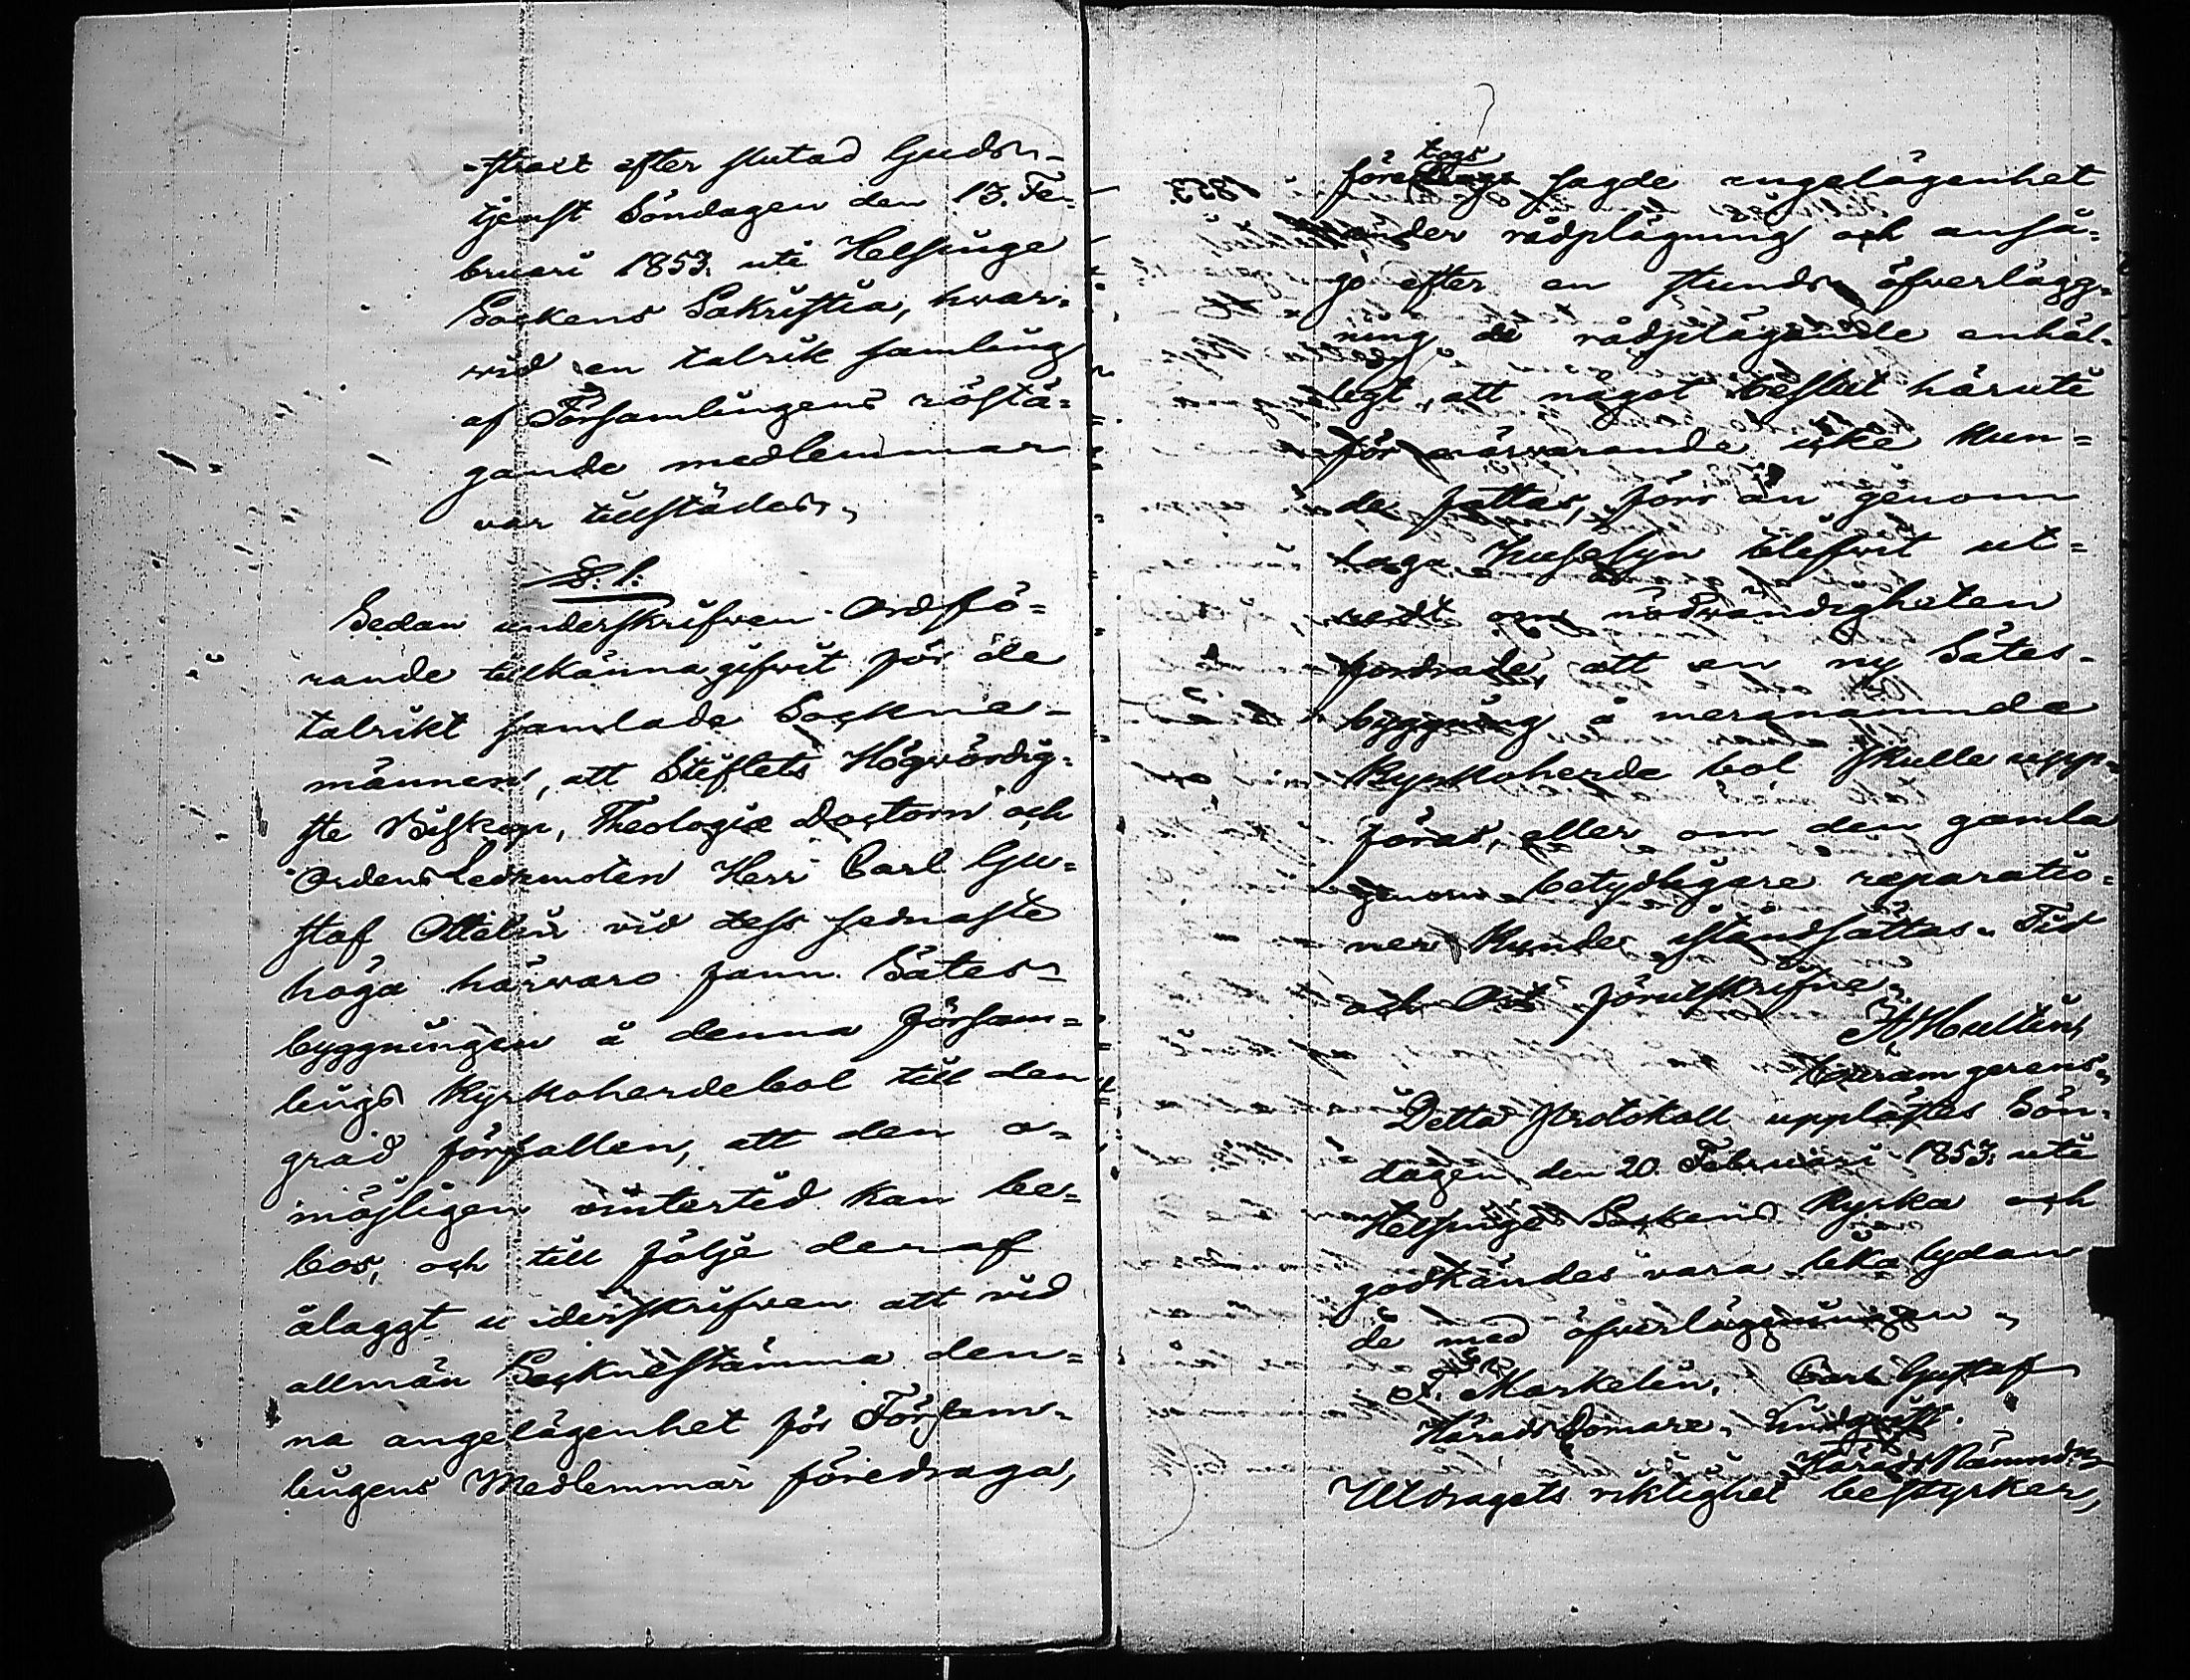 straxt efter slutad Guds-
tjenst Söndagen den 13. Fe-
bruari 1853. uti Helsinge
Sockens Sakristia, hvar-
vid en talrik samling
af Församlingens röstä-
gande medlemmar
var tillstädes.
§. 1.
Sedan underskrifven Ordfö-
rande tillkännagifvit för de
talrikt samlade Sockne-
männen, att Stiftets Högvördig-
ste Biskop, Theologiæ Doctorn och
OrdensLedamoten Herr Carl Gu-
staf Ottelin vid dess sednaste
höga härvaro fann Sätes-
byggningen å denna Försam-
lings Kyrkoherdebol till den
grad förfallen, att den o-
möjligen vintertid kan be-
bos, och till följe deraf
ålaggt underskrifven att vid
allmän Socknestämma den-
na angelägenhet för Försam-
lingens Medlemmar föredraga,
företogs sagde angelägenhet
under rådplägning och anså-
go efter en stunds öfverlägg-
ning de rådplägande enhäl-
legt, att något beslut häruti
för närvarande icke kun-
de fattas, förr än genom
laga Husesyn blefvit ut-
redt om nödvändigheten
fordrade, att en ny Sätes-
byggning å mernämnde
Kyrkoherde bol skulle upp-
föras, eller om den gamla
genom betydligare reparatio-
ner kunde iståndsättas. Tid
och Ort förutskrifne.
A. Hultin,
Curam gerens.
Detta Protokoll upplästes Sön-
dagen den 20. Februari 1853. uti
Helsinge Sockens Kyrka och
godkändes vara lika lydan
de med öfverläggningen.
Markelin. Carl Gustaf
Härads Domare. Lindqvist.
Härads Nämndm.
Utdragets riktighet bestyrker,